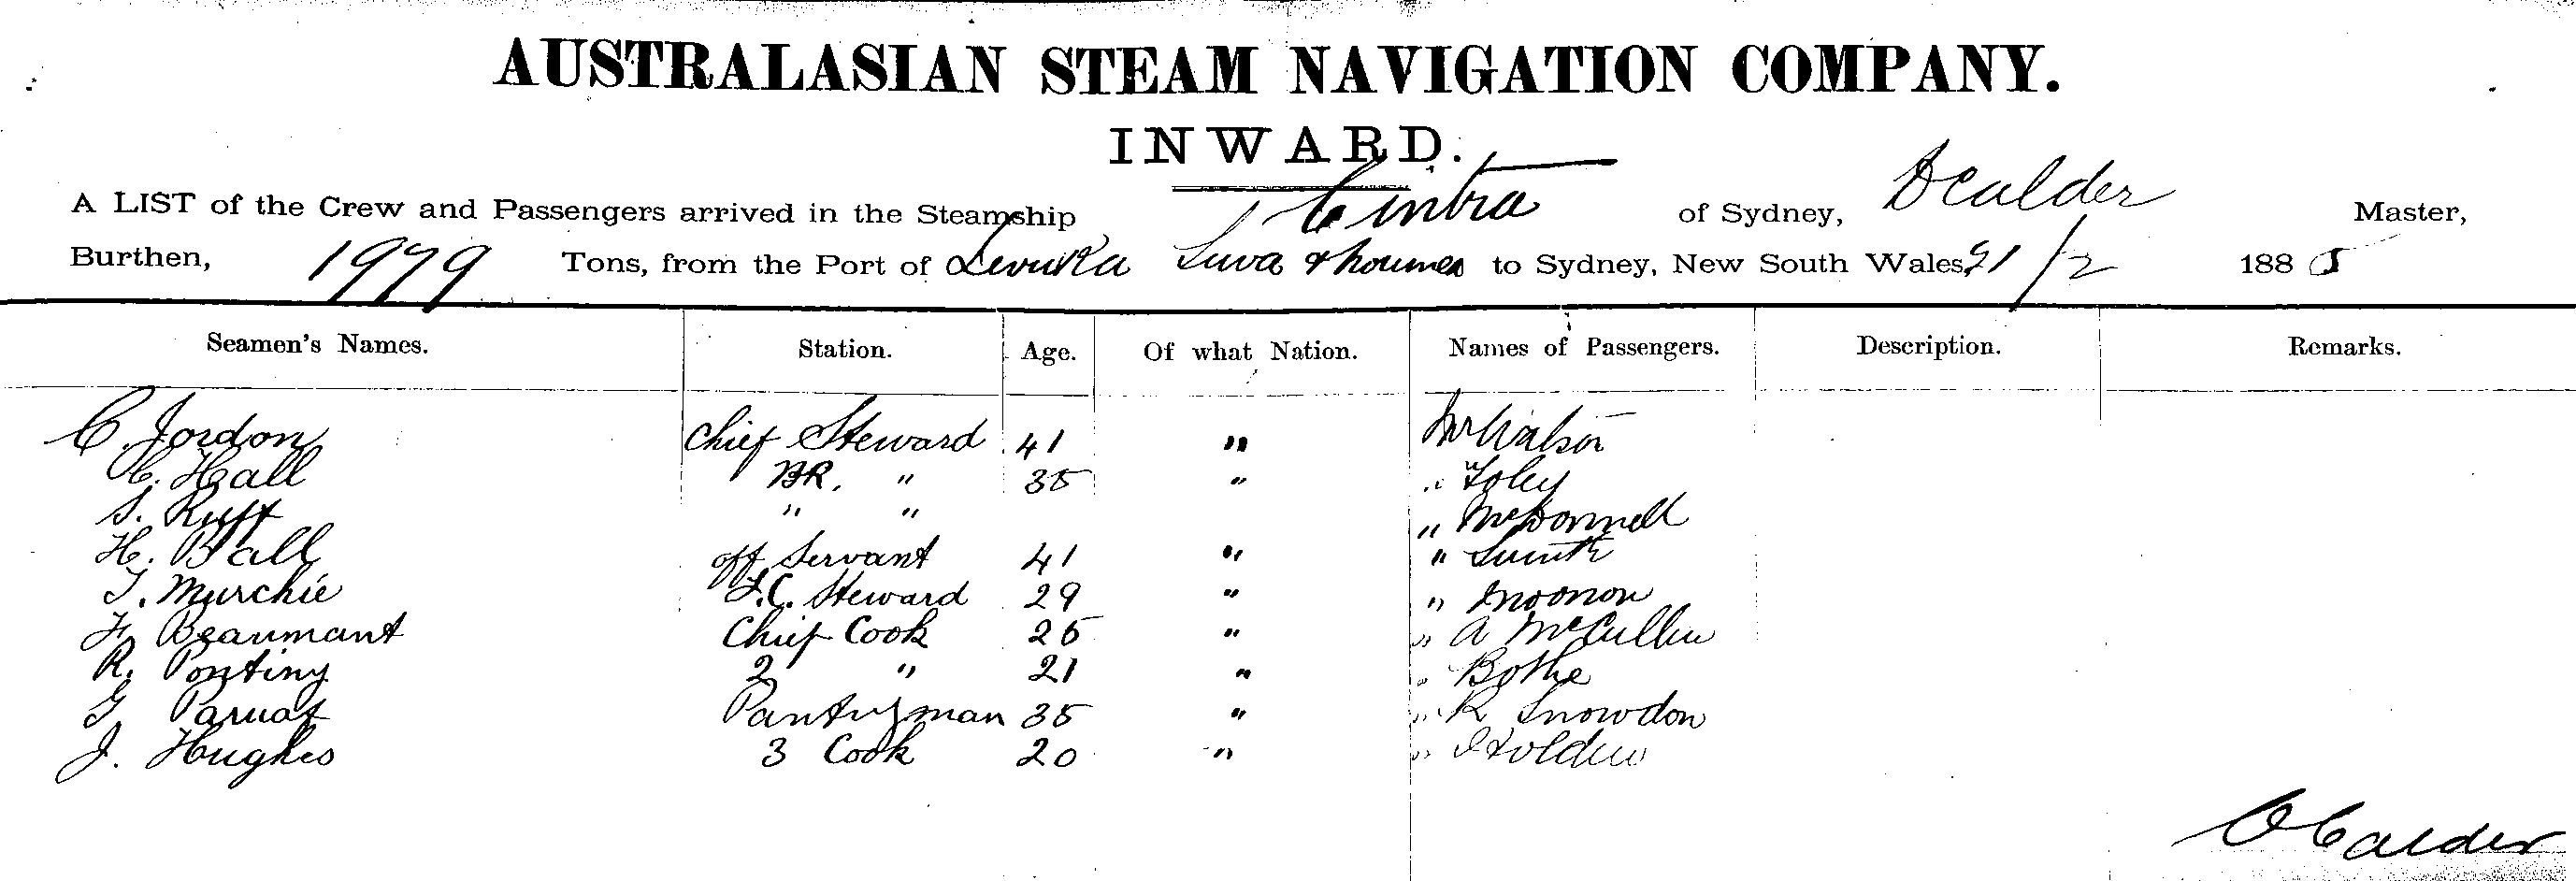 AUSTRALASIAN STEAM NAVIGATION COMPANY.
INWARD.
A LIST of the Crew and Passengers arrived in the Steamship Cintra of Sydney, D Calder Master,
Burthen, 1979 Tons, from the Port of Levuka Suva & Noumea to Sydney, New South Wales, 21/2 1885
Seamen's Names. Station. Age. Of what Nation. Names of Passengers. Description. Remarks.
C. Jordon Chief Steward 41 " Mr Watson
C. Hall BR. " 35 " " Foley
S. Ruff " " " McDonnell
H. Ball off Servant 41 " " Smith
T. Murchie F.C. Steward 29 " "
F Beaumant Chief Cook 25 " " A McCullin
R. Pontiny 2 " 21 " " Bothe
G Pantryman 35 " " R Snowdon
J. Hughes 3 Cook 20 " " Holden
D Calder